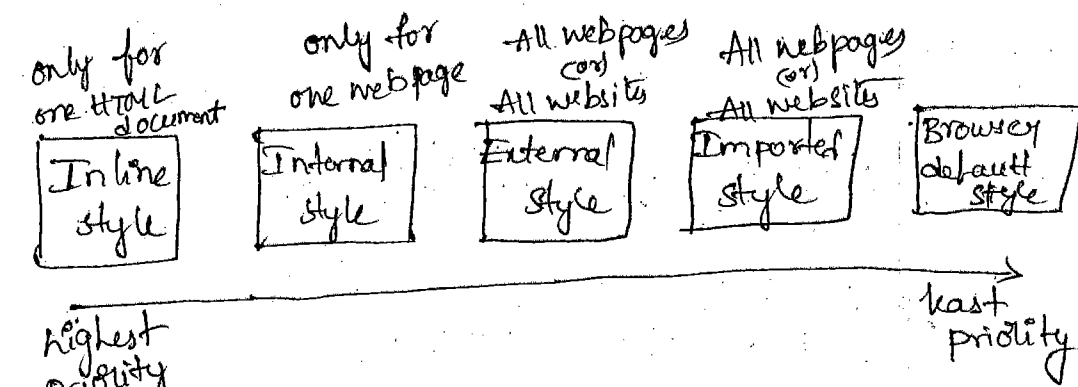 only for
one HTML
document
Inline
style
only for
one webpage
Internal
style
All webpages
(or)
All websites
External
style
All webpages
(or)
All websites
Imported
style
Browser
default
style
highest
priority
least
priority